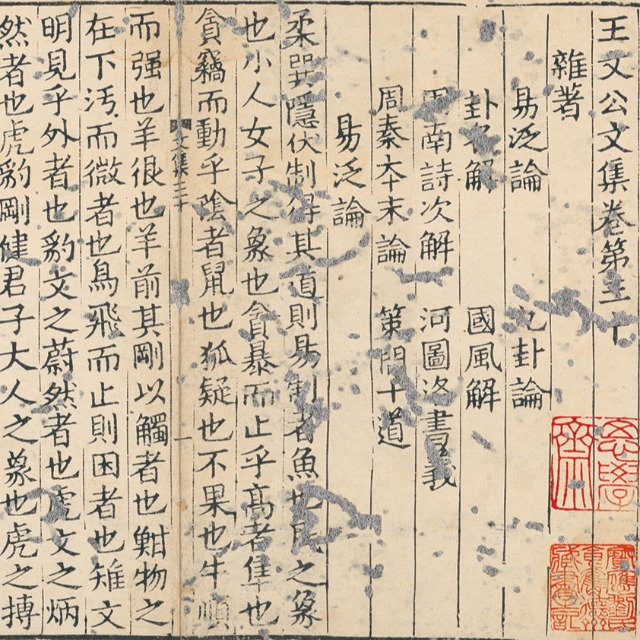 王文公文集卷第三十
雜著
易泛論 九卦論
卦名解 國風解
周南詩次解 河圖洛書義
周秦本末論 策問十道
易泛論
柔巽隱伏制得其道則易制者魚也民之象
也小人女子之象也貪暴而止乎高者隼也
貪竊而動乎陰者鼠也狐疑也不果也牛順
文集三十 一
而强也羊很也羊前其剛以觸者也鮒物之
在下汚而微者也鳥飛而止則困者也雉文
明見乎外者也豹文之蔚然者也虎文之炳
然者也虎豹剛健君子大人之象也虎之摶